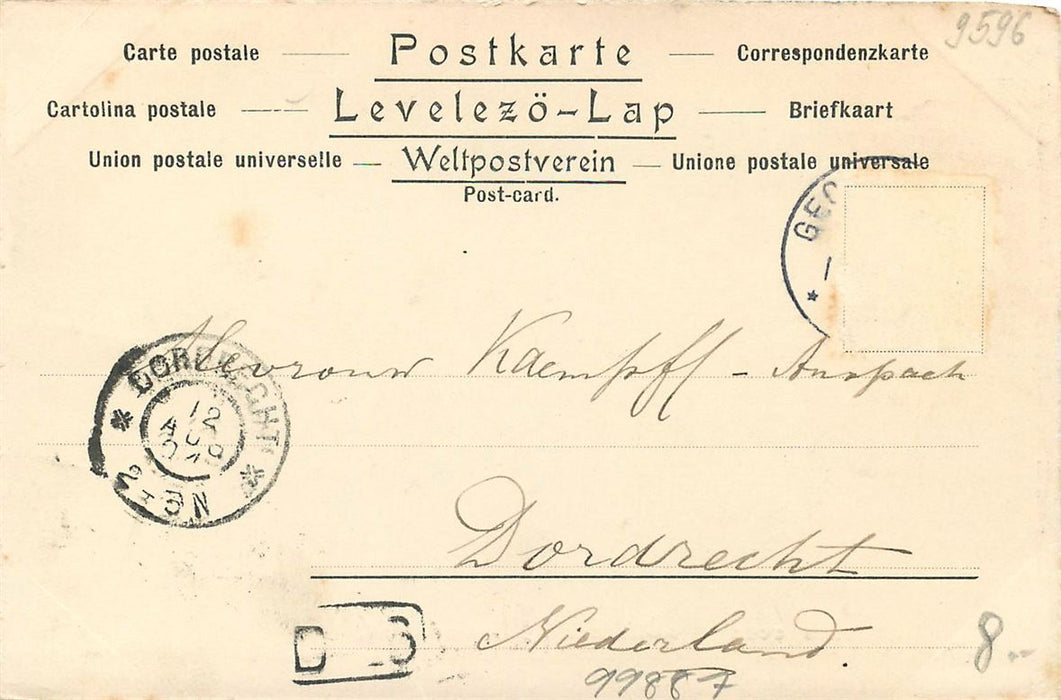 9596
Carte postale — Postkarte — Correspondenzkarte
Cartolina postale — Levelező-Lap — Briefkaart
Union postale universelle — Weltpostverein — Unione postale universale
Post-card.
GEO
Mevrouw Kaempff - Anspach
DORDRECHT
12
AUG
2-3N
Dordrecht
Niederland.
D 6
8.--
99887